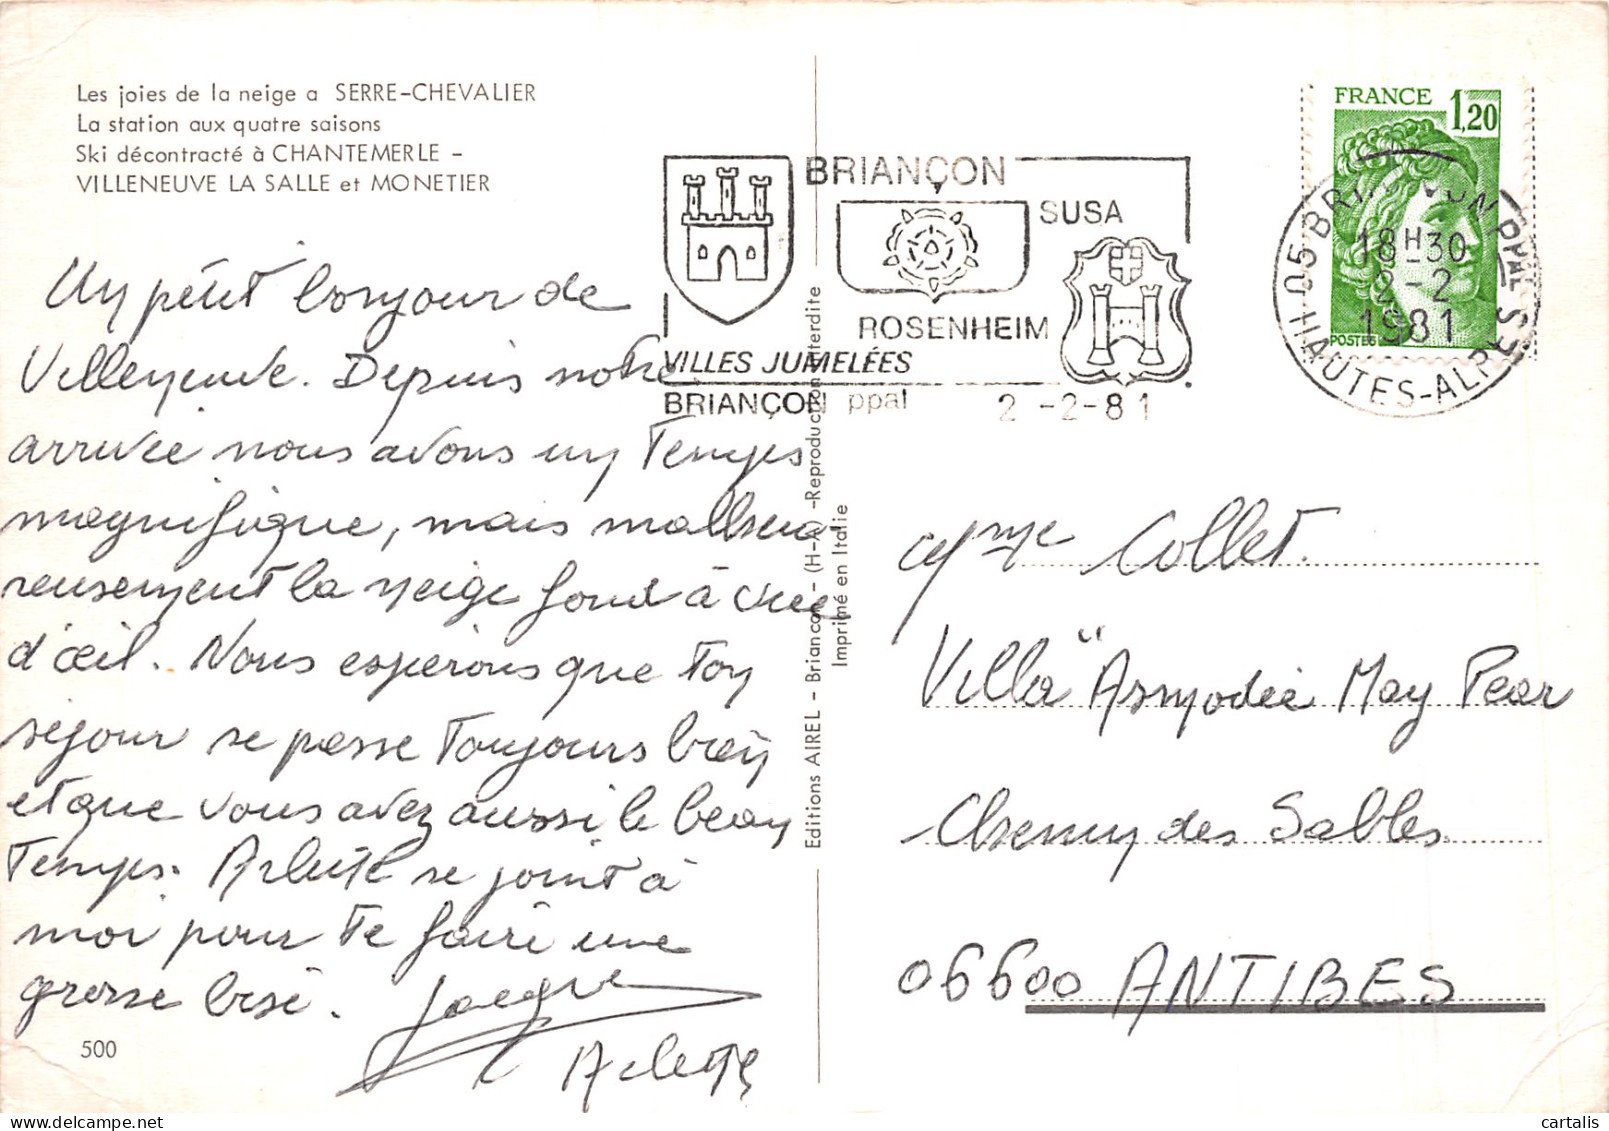 Les joies de la neige a SERRE-CHEVALIER
La station aux quatre saisons
Ski décontracté à CHANTEMERLE -
VILLENEUVE LA SALLE et MONETIER
Un pétit bonjour de
Villeneuve. Depuis notre
arrivée nous avons un Temps
magnifique, mais malheu-
reusement la neige fond à vue
d'œil. Nous esperons que ton
séjour se passe Toujours bien
et que vous avez aussi le beau
Temps. Arlette se joint à
moi pour te faire une
grosse bise.
Arlette
500
Editions AIREL - Briancon - (H-A) - Reproduction interdite
Imprimé en Italie
BRIANÇON
SUSA
ROSENHEIM
VILLES JUMELÉES
BRIANÇON ppal 2 -2-81
FRANCE 1,20
POSTES
05 BRIANÇON PPAL
18H30
2 -2
1981
HAUTES-ALPES
Mme Collet.
Villa "Asmodée May Pear
Chemin des Sables
06600 ANTIBES
cartalis